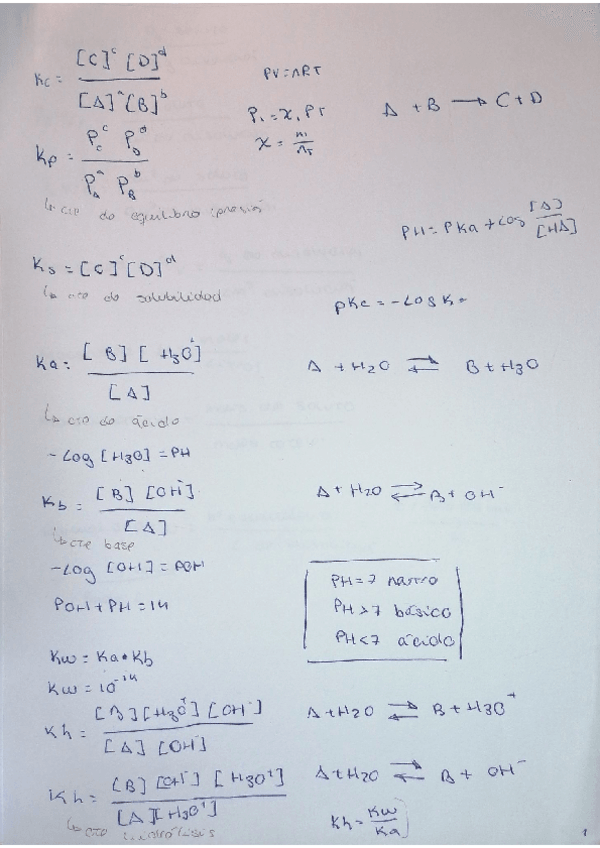 Kc = [C]^c [D]^d / [A]^a [B]^b
PV = nRT
A + B → C + D
P₁ = x₁ PT
x = n₁ / nT
Kp = P_C^c P_D^d / P_A^a P_B^b
↳ cte do equilibro (presión
PH = PKa + Log [A] / [HA]
Ks = [C]^c [D]^d
↳ cte do solubilidad
pKc = -Log K
Ka = [B] [H₃O⁺] / [A]
A + H₂O ⇌ B + H₃O
↳ cte do ácido
-Log [H₃O] = PH
Kb = [B] [OH⁻] / [A]
A + H₂O ⇌ B + OH⁻
↳ cte base
-Log [OH] = POH
PH = 7
POH + PH = 14
PH > 7 básico
PH < 7 ácido
Kw = Ka • Kb
Kw = 10⁻¹⁴
Kh = [B] [H₃O⁺] [OH⁻] / [A] [OH⁻]
A + H₂O ⇌ B + H₃O⁺
Kh = [B] [OH⁻] [H₃O⁺] / [A][H₃O⁺]
A + H₂O ⇌ B + OH⁻
↳ cte hidrólisis
Kh = Kw / Ka
1